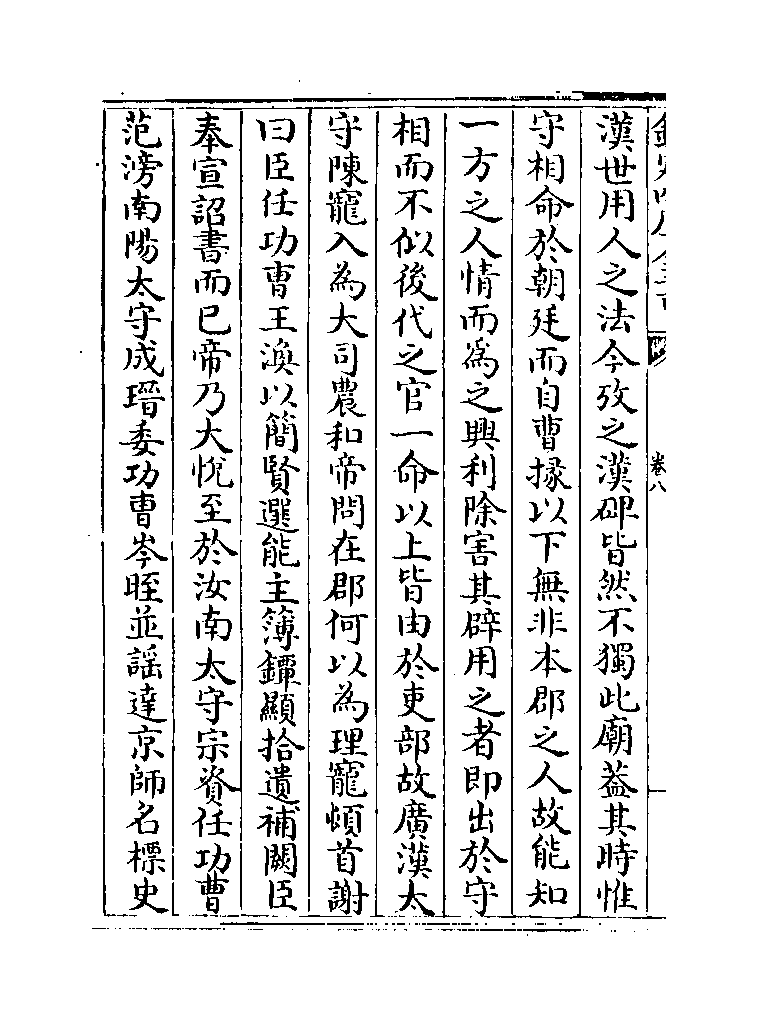 卷八
漢世用人之法今攷之漢碑皆然不獨此廟葢其時惟
守相命於朝廷而自曹掾以下無非本郡之人故能知
一方之人情而為之興利除害其辟用之者即出於守
相而不似後代之官一命以上皆由於吏部故廣漢太
守陳寵入為大司農和帝問在郡何以為理寵頓首謝
曰臣任功曹王渙以簡賢選能主簿鐔顯拾遺補闕臣
奉宣詔書而已帝乃大悅至於汝南太守宗資任功曹
范滂南陽太守成瑨委功曹岑晊並謡達京師名標史